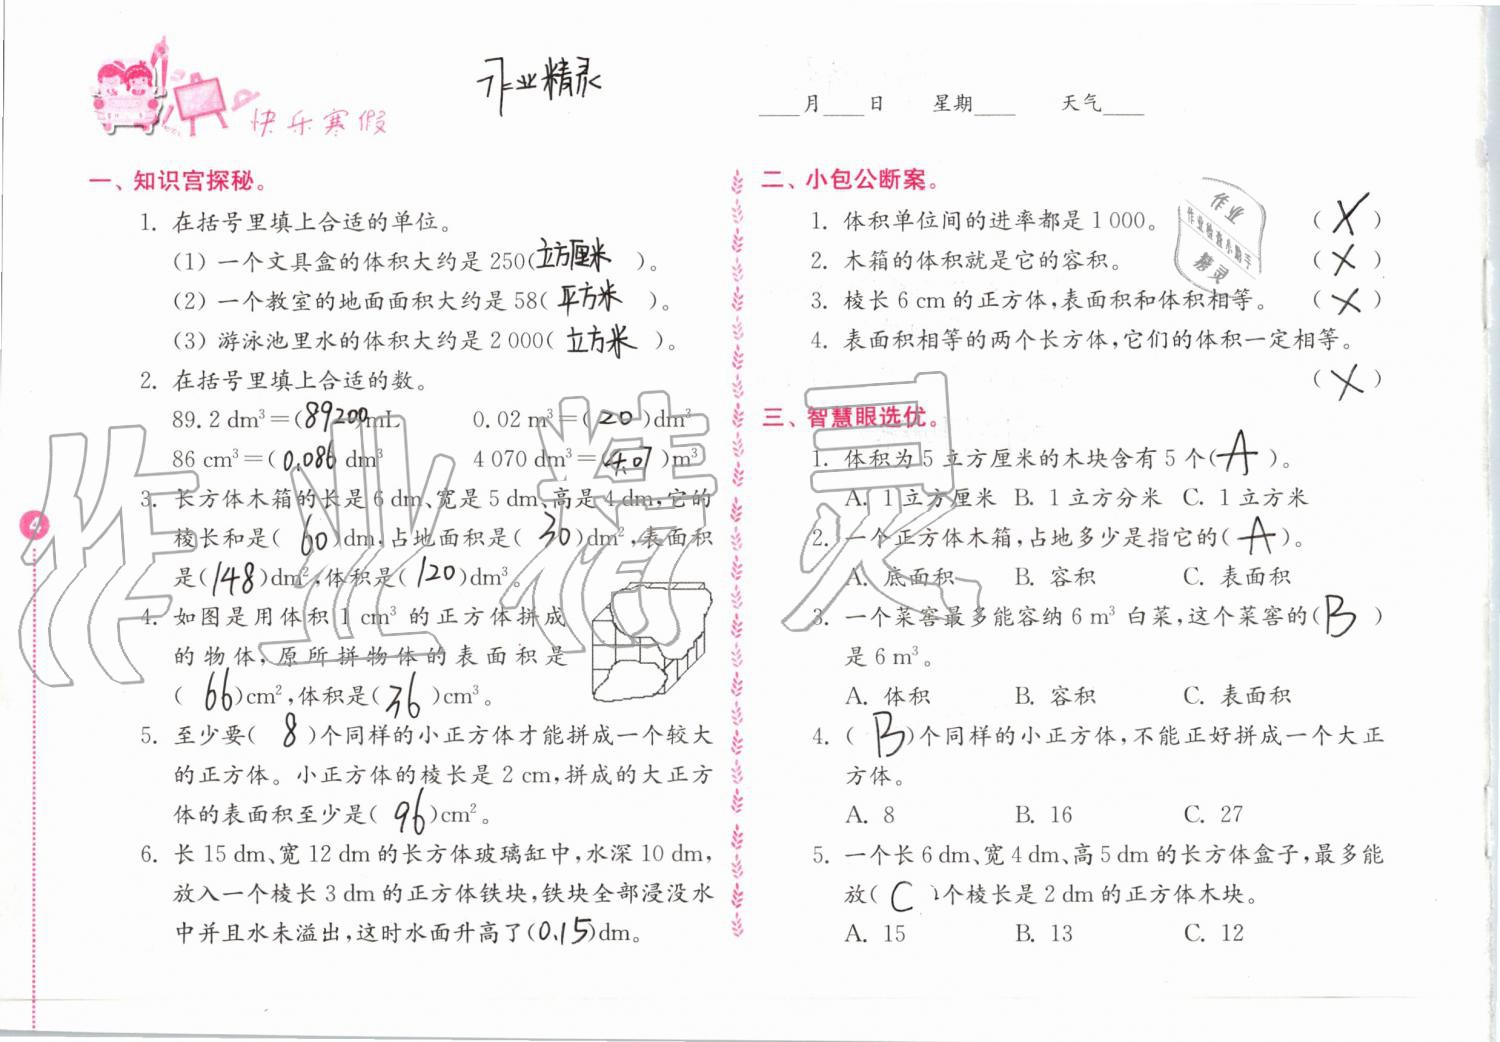 作业精灵
快乐寒假
____月____日 星期____ 天气____
一、知识宫探秘。
1. 在括号里填上合适的单位。
(1) 一个文具盒的体积大约是250(立方厘米)。
(2) 一个教室的地面面积大约是58(平方米)。
(3) 游泳池里水的体积大约是2 000(立方米)。
2. 在括号里填上合适的数。
89.2 dm³=(89200)mL 0.02 m³=(20)dm³
86 cm³=(0.086 dm³ 4 070 dm³=(4.07)m³
3. 长方体木箱的长是6 dm、宽是5 dm、高是4 dm,它的
棱长和是(60)dm,占地面积是(30)dm²,表面积
是(148)dm²,体积是(120)dm³。
4. 如图是用体积1 cm³的正方体拼成
的物体,原所拼物体的表面积是
(66)cm²,体积是(36)cm³。
5. 至少要(8)个同样的小正方体才能拼成一个较大
的正方体。小正方体的棱长是2 cm,拼成的大正方
体的表面积至少是(96)cm²。
6. 长15 dm、宽12 dm的长方体玻璃缸中,水深10 dm,
放入一个棱长3 dm的正方体铁块,铁块全部浸没水
中并且水未溢出,这时水面升高了(0.15)dm。
4
二、小包公断案。
1. 体积单位间的进率都是1 000。 (X)
2. 木箱的体积就是它的容积。 (X)
3. 棱长6 cm的正方体,表面积和体积相等。 (X)
4. 表面积相等的两个长方体,它们的体积一定相等。
(X)
三、智慧眼选优。
1. 体积为5立方厘米的木块含有5个(A)。
A. 1立方厘米 B. 1立方分米 C. 1立方米
2. 一个正方体木箱,占地多少是指它的(A)。
A. 底面积 B. 容积 C. 表面积
3. 一个菜窖最多能容纳6 m³白菜,这个菜窖的(B)
是6 m³。
A. 体积 B. 容积 C. 表面积
4. (B)个同样的小正方体,不能正好拼成一个大正
方体。
A. 8 B. 16 C. 27
5. 一个长6 dm、宽4 dm、高5 dm的长方体盒子,最多能
放(C)个棱长是2 dm的正方体木块。
A. 15 B. 13 C. 12
作业
作业检查小助手
精灵
作业精灵